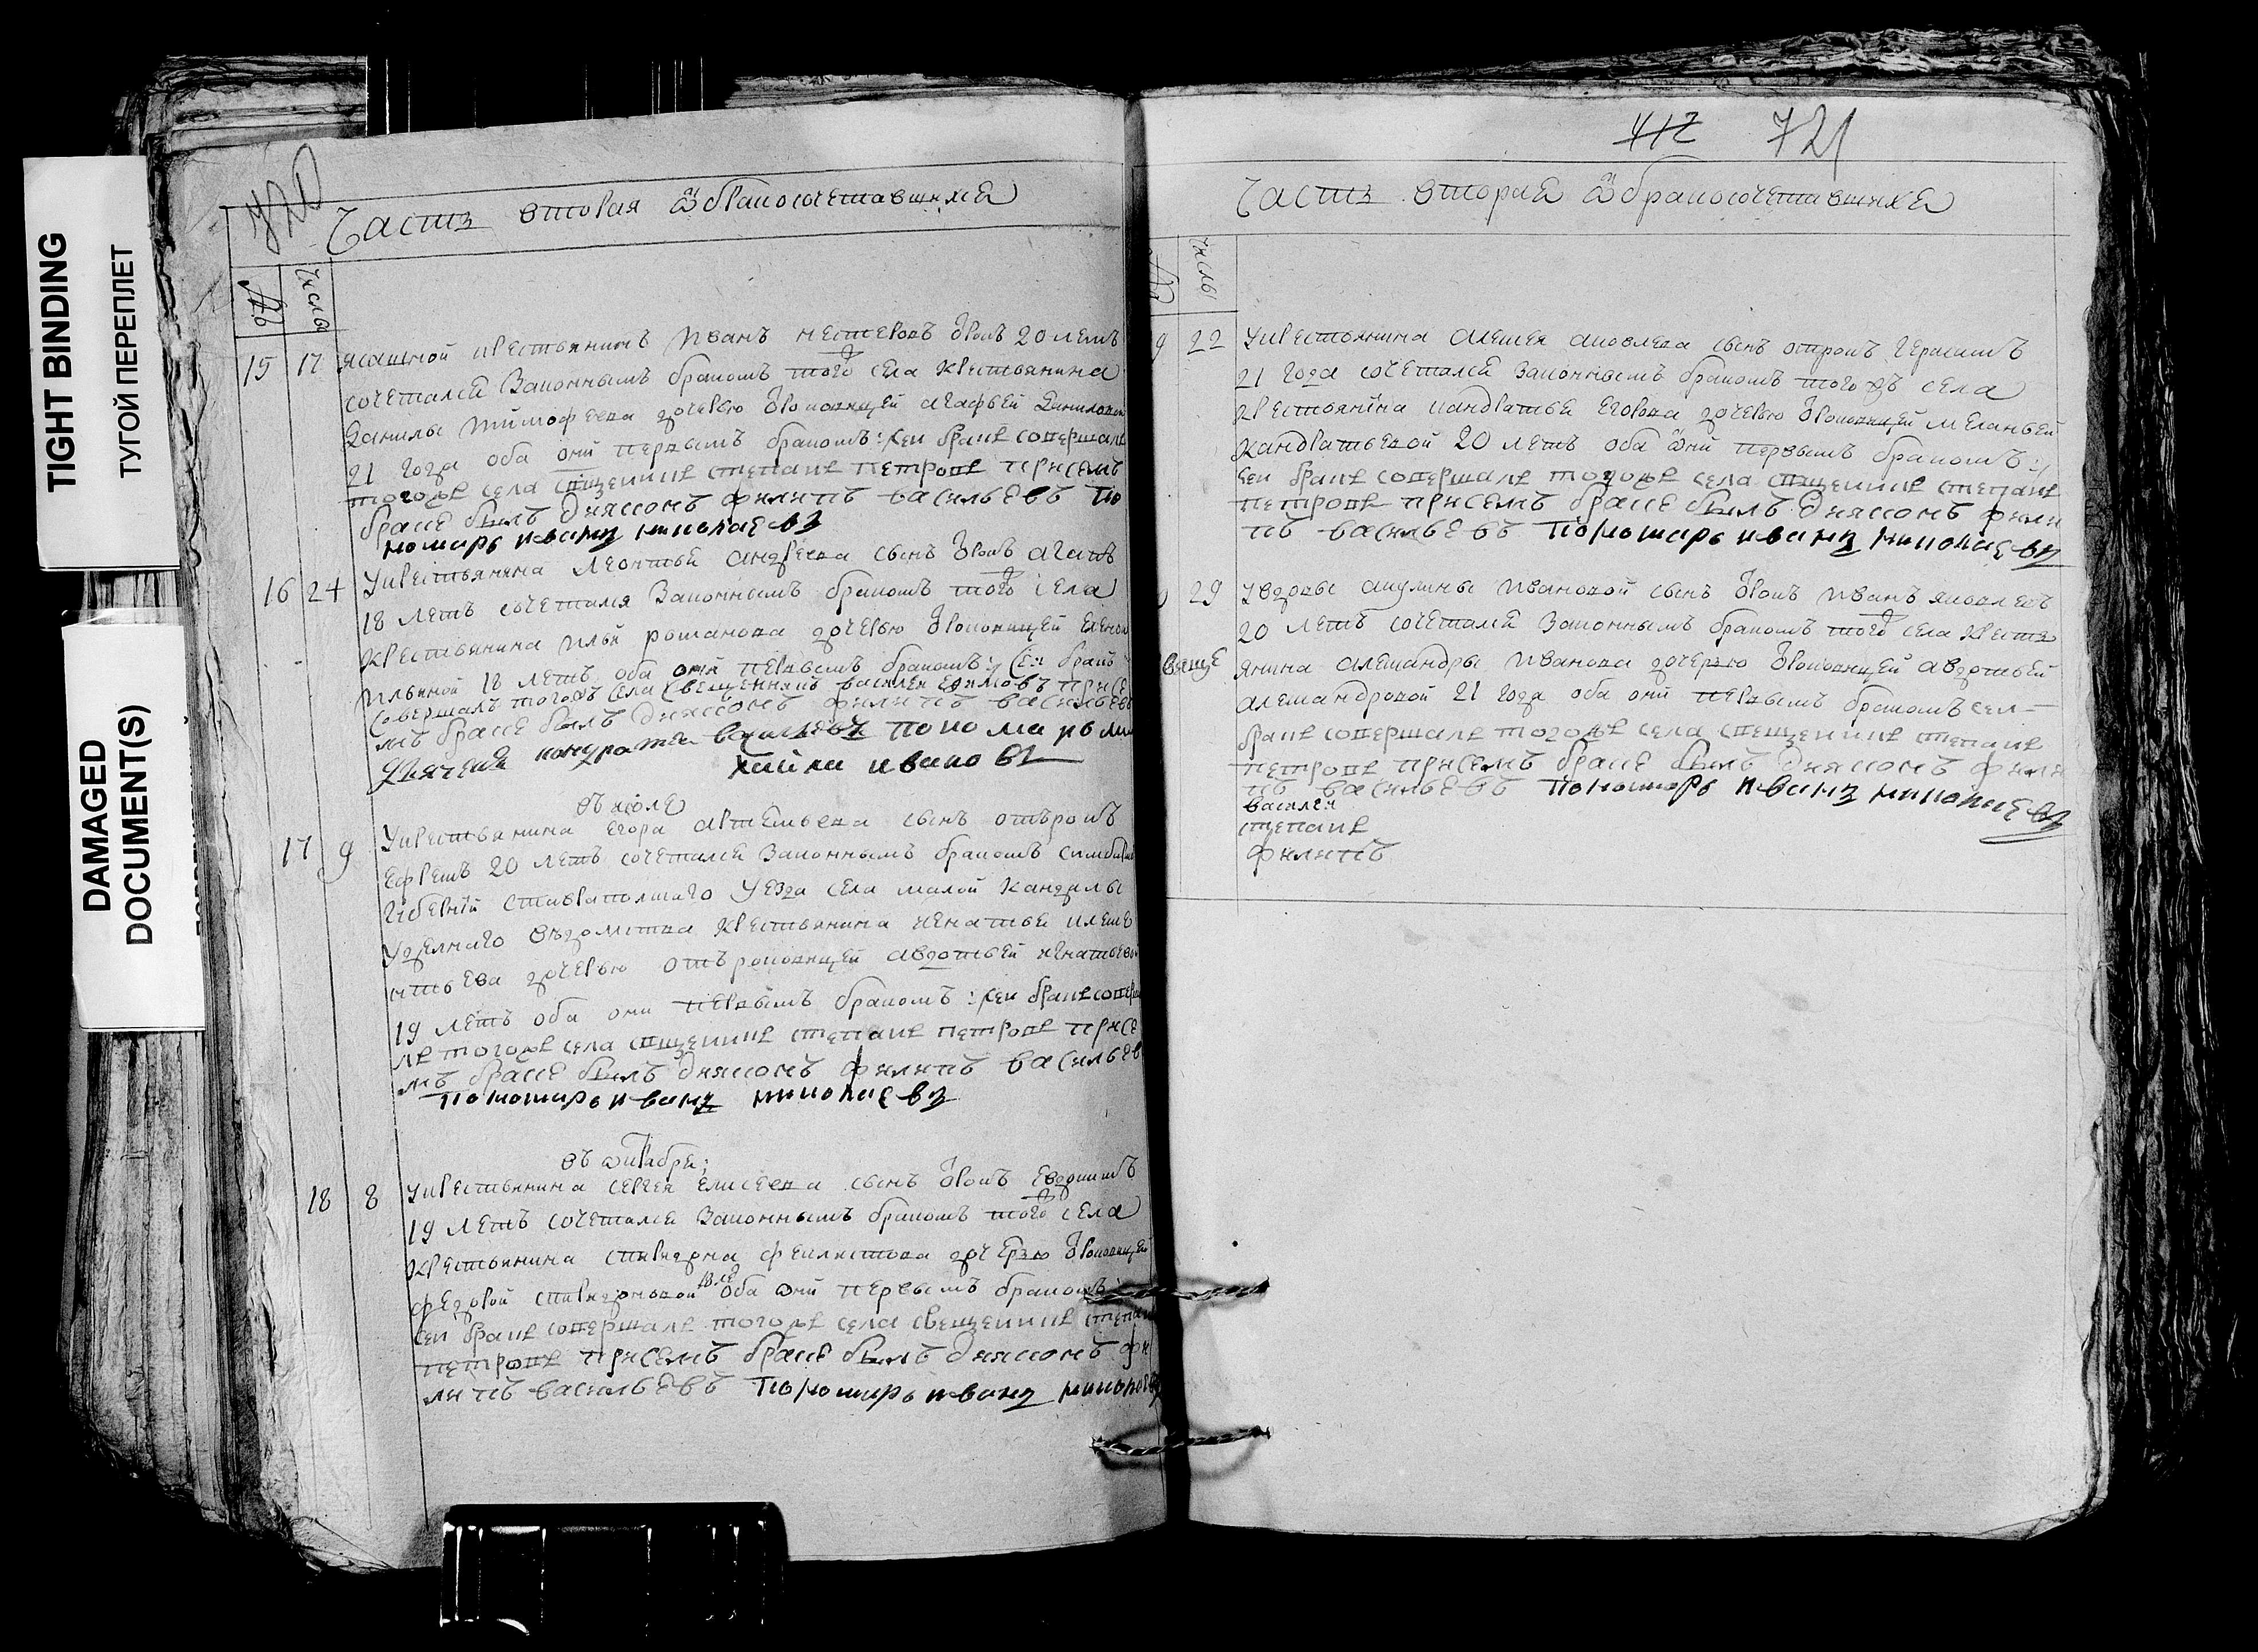 TIGHT BINDING
ТУГОЙ ПЕРЕПЛЕТ
DAMAGED
DOCUMENT(S)
720
Часть вторая ѿ бракосочетавшихся
№
числы
15 17 ясашной крестьянинъ Иванъ Нестеровъ отрокъ 20 летъ
сочетался законнымъ бракомъ того села крестьянина
Данилы Тимофеева дочерью отроковицей Агафьей Даниловой
21 года оба они первымъ бракомъ: сеи бракъ совершалъ
тогожъ села священникъ Степанъ Петровъ присемъ
браке былъ дияконъ Филипъ Васильевъ по
номарь Иванъ Николаевъ
16 24 У крестьянина Леонтья Андреева сынъ отрокъ
18 летъ сочетался законнымъ бракомъ того села
крестьянина Ильи Романова дочерью отроковицей Еленой
Ильиной 18 летъ оба они первымъ бракомъ: сеи бракъ
совершалъ тогожъ села священникъ Василей Ефимовъ присе
мъ браке былъ дияконъ Филипъ Васильевъ
дьячекъ Кондратей Васильевъ пономарь Ми
хайла Ивановъ
въ июле
17 9 У крестьянина Егора Артемьева сынъ отърокъ
Ефремъ 20 летъ сочетался законнымъ бракомъ Симбирской
губерний Ставропольшаго уезда села Малой Кандалы
уделнаго ведомства крестьянина Игнатья Климе
нтьева дочерью отъроковицей Авдотьей Игнатьевой
19 летъ оба они первымъ бракомъ: сеи бракъ совершa
лъ тогожъ села священникъ Степанъ Петровъ присе
мъ браке былъ дияконъ Филипъ Васильевъ
пономарь Иванъ Николаевъ
въ октябре;
18 8 У крестьянина Сергея Елисеева сынъ отрокъ Евдокимъ
19 летъ сочетался законнымъ бракомъ того села
крестьянина Спиридона Феклистова дочерью отроковицей
Федорой Спиридоновой 18 ле оба они первымъ бракомъ
сеи бракъ совершалъ тогожъ села свещенникъ Степанъ
Петровъ присемъ браке былъ дияконъ Фи
липъ Васильевъ пономарь Иванъ Николаевъ
417 721
Часть вторая ѿ бракосочетавшихся
№
числы
9 22 У крестьянина Алексея Яковлева сынъ отрокъ Герасимъ
21 года сочетался законнымъ бракомъ тогожъ села
крестьянина Кандратья Егорова дочерью отроковицей Меланьей
Кандратьевой 20 летъ оба они первымъ бракомъ:
сеи бракъ совершалъ тогожъ села священникъ Степанъ
Петровъ присемъ браке былъ дияконъ Фили
пъ Васильевъ пономарь Иванъ Николаевъ
29 У вдовы Акулины Ивановой сынъ отрокъ Иванъ Яковлевъ
20 летъ сочетался законнымъ бракомъ того села кресть
янина Алешандры Иванова дочерью отроковицей Авдотьей
Алешандровой 21 года оба они первымъ бракомъ сеи
бракъ совершалъ тогожъ села священникъ Степанъ
Петровъ присемъ браке былъ дияконъ Фили
пъ Васильевъ пономарь Иванъ Николаевъ
Василей
Степанъ
Филипъ